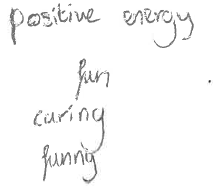 positive energy
fun
caring
funny